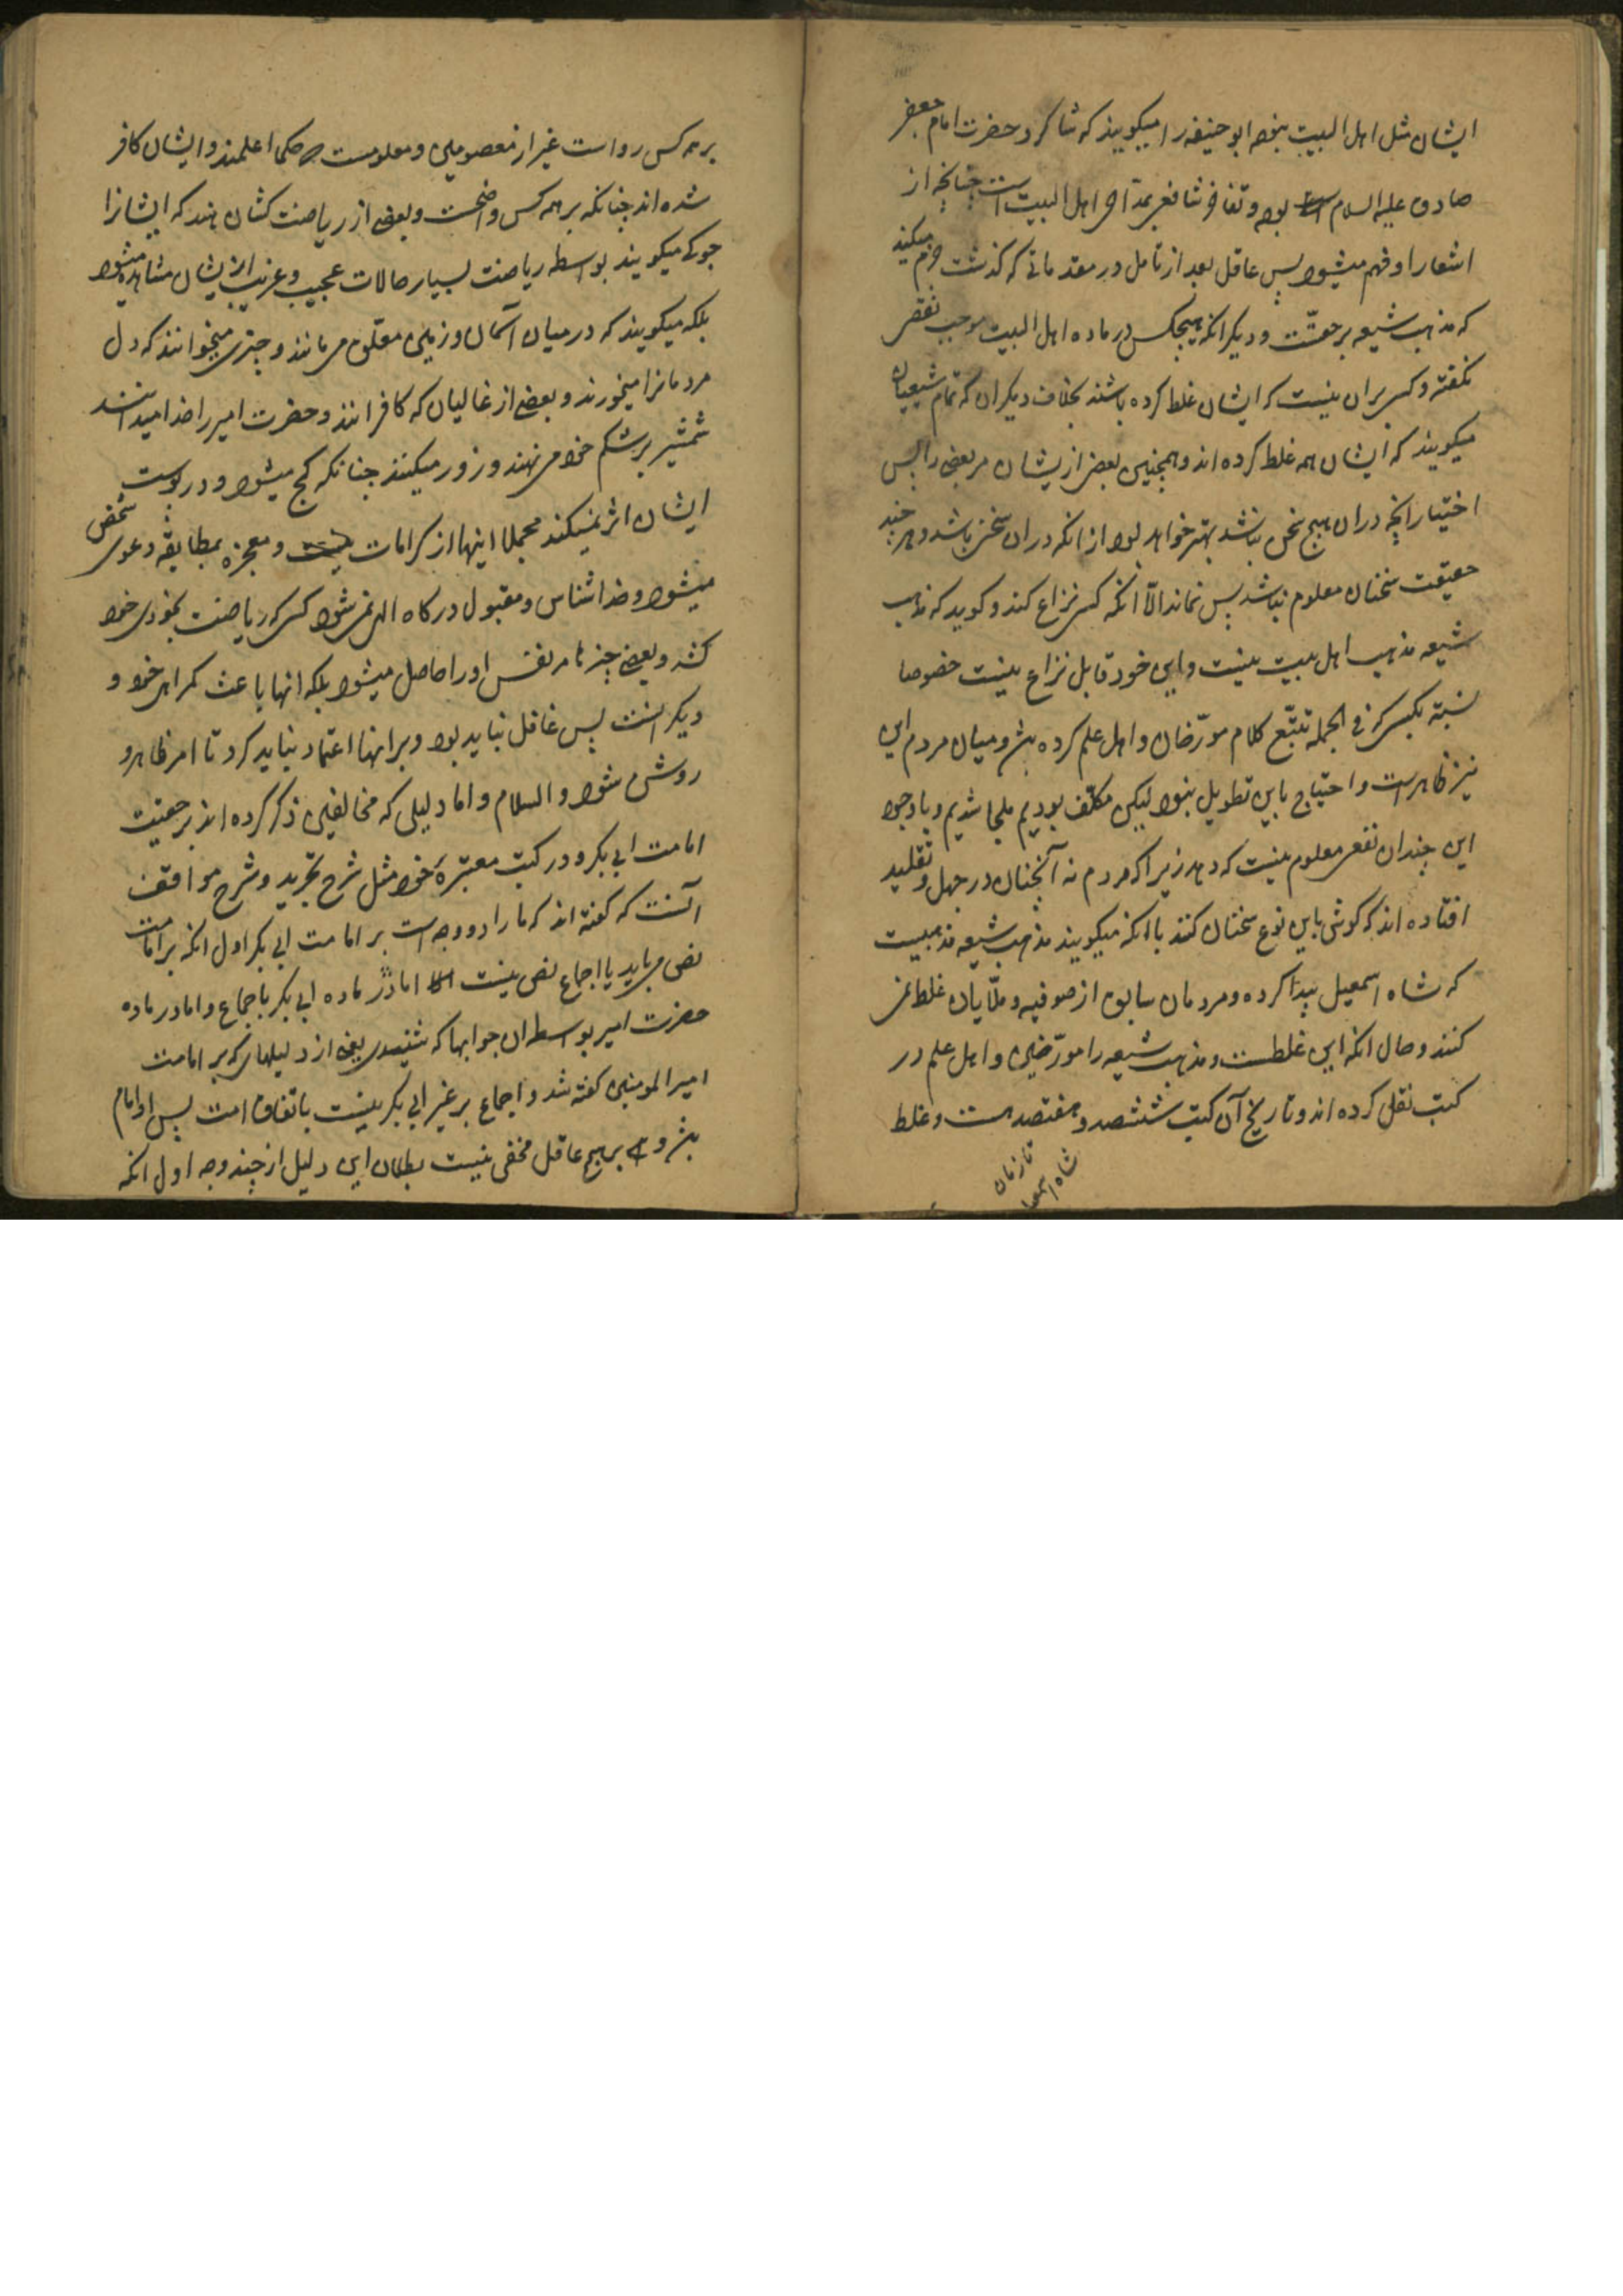 ایشان مثل اهل البیت بنوده ابو حنیفه را میگویند که شاگرد حضرت امام جعفر
صادق علیه السلام بوده و تفاخر شافعی بمداحی اهل البیت است چنانچه از
اشعار او فهم میشود پس عاقل بعد از تامل در مقدماتی که گذشت جزم میکند
که مذهب شیعه بر حقست و دیگر آنکه هیچکس در ماده اهل البیت موجب نقص
نکفته و کسی بران نیست که ایشان غلط کرده باشند بخلاف دیگران که تمام شیعیان
میگویند که ایشان همه غلط کرده اند و همچنین بعضی از ایشان مر بعضی را پس
اختیار آنچه دران هیچ سخن نباشد بهتر خواهد بود از آنکه دران سخن باشد و هر چند
حقیقت سخنان معلوم نباشد پس نماند الّا آنکه کسی نزاع کند و گوید که مذهب
شیعه مذهب اهل بیت نیست و این خود قابل نزاع نیست خصوصا
نسبة بکسی که فی الجمله تتبّع کلام مورّخان و اهل علم کرده باشد و میان مردم این
نیز ظاهرست و احتیاج باین تطویل نبود لیکن مکلّف بودیم ملجا شدیم و باوجود
این چندان نفعی معلوم نیست که دهد زیرا که مردم نه آنچنان در جهل و تقلید
افتاده اند که گوش باین نوع سخنان کنند با آنکه میگویند مذهب شیعه مذهبیست
که شاه اسمعیل پیدا کرده و مردمان سابق از صوفیه و ملّایان غلط نمی
کنند و حال آنکه این غلطست و مذهب شیعه را مورّخین و اهل علم در
کتب نقل کرده اند و تاریخ آن کتب ششصد و هفتصد هست و غلط
تا زمان
شاه
بر همه کس رواست غیر از معصومین و معلومست که حکما اعلمند و ایشان کافر
شده اند چنانکه بر همه کس واضحست و بعضی از ریاضت کشان هند که ایشانرا
جوکی میگویند بواسطه ریاضت بسیار حالات عجیب و غریب از ایشان مشاهده میشود
بلکه میگویند که در میان آسمان و زمین معلّق می مانند و چیزی میخوانند که دل
مردمانرا میخورند و بعضی از غالیان که کافرانند و حضرت امیر را خدا میدانند
شمشیر بر شکم خود می نهند و زور میکنند چنانکه کج میشود و در پوست
ایشان اثر نمیکند مجملا اینها از کرامات نیست و معجزه بمطابقه دعوی شخص
میشود و خداشناس و مقبول درگاه الهی نمی شود کسی که ریاضت بخودی خود
کشد و بعضی چیزها مر نفس او را حاصل میشود بلکه آنها باعث گمراهی خود و
دیگر انست پس غافل نباید بود و بر اینها اعتماد نباید کرد تا امر ظاهر و
روشن شود والسلام و اما دلیلی که مخالفین ذکر کرده اند بر حقیت
امامت ابی بکر و در کتب معتبرهٔ خود مثل شرح تجرید و شرح مواقف
آنست که گفته اند که ما را دو وجه است بر امامت ابی بکر اول آنکه بر امامت
نص می باید یا اجماع نص نیست اما در ماده ابی بکر باجماع و اما در ماده
حضرت امیر بواسطه ان جوابها که شنیدی یعنی از دلیلهای که بر امامت
امیر المومنین گفته شد و اجماع بر غیر ابی بکر نیست باتفاق امت پس او امام
باشد و بر هیچ عاقل مخفی نیست بطلان این دلیل از چند وجه اول آنکه